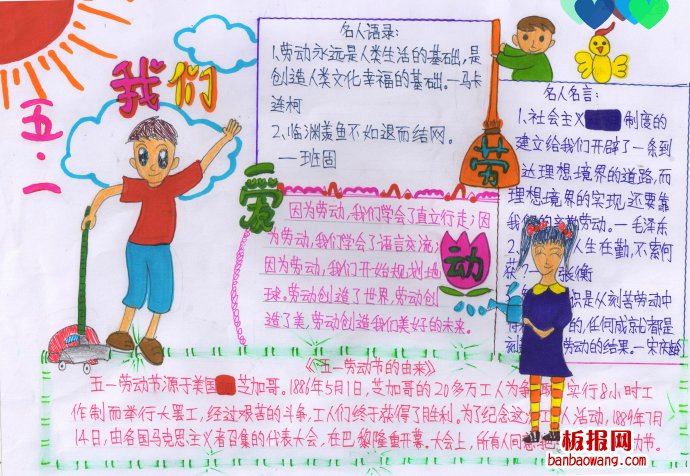 五·一
我们
爱
劳
动
名人语录:
1、劳动永远是人类生活的基础,是
创造人类文化幸福的基础。—马卡
连柯
2、临渊羡鱼不如退而结网。
—班固
因为劳动,我们学会了直立行走;因
为劳动,我们学会了语言交流;
因为劳动,我们开始规划地
球。劳动创造了世界,劳动创
造了美,劳动创造我们美好的未来。
名人名言:
1、社会主义 制度的
建立给我们开辟了一条到
达理想境界的道路,而
理想境界的实现,还要靠
我们的辛勤劳动。—毛泽东
2、 人生在勤,不索何
获? 张衡
识是从刻苦劳动中
得 的,任何成就都是
刻 劳动的结果。—宋庆龄
《五一劳动节的由来》
五一劳动节源于美国 芝加哥。1886年5月1日,芝加哥的20多万工人为争 实行8小时工
作制而举行大罢工,经过艰苦的斗争,工人们终于获得了胜利。为了纪念这次 人活动,1889年7月
14日,由各国马克思主义者召集的代表大会,在巴黎隆重开幕。大会上,所有人同意把 动节。
板报网
banbaowang.com